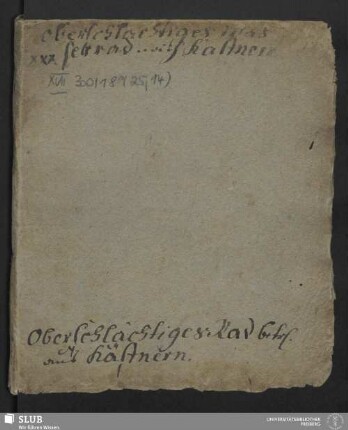 oberschlächtiges was
XXX serrad ... Kästnern
XVII 300(18 (25, 14)
Oberschlächtiges Rad betref.
aus Kästnern.
SLUB
Wir führen Wissen.
UNIVERSITÄTSBIBLIOTHEK
FREIBERG